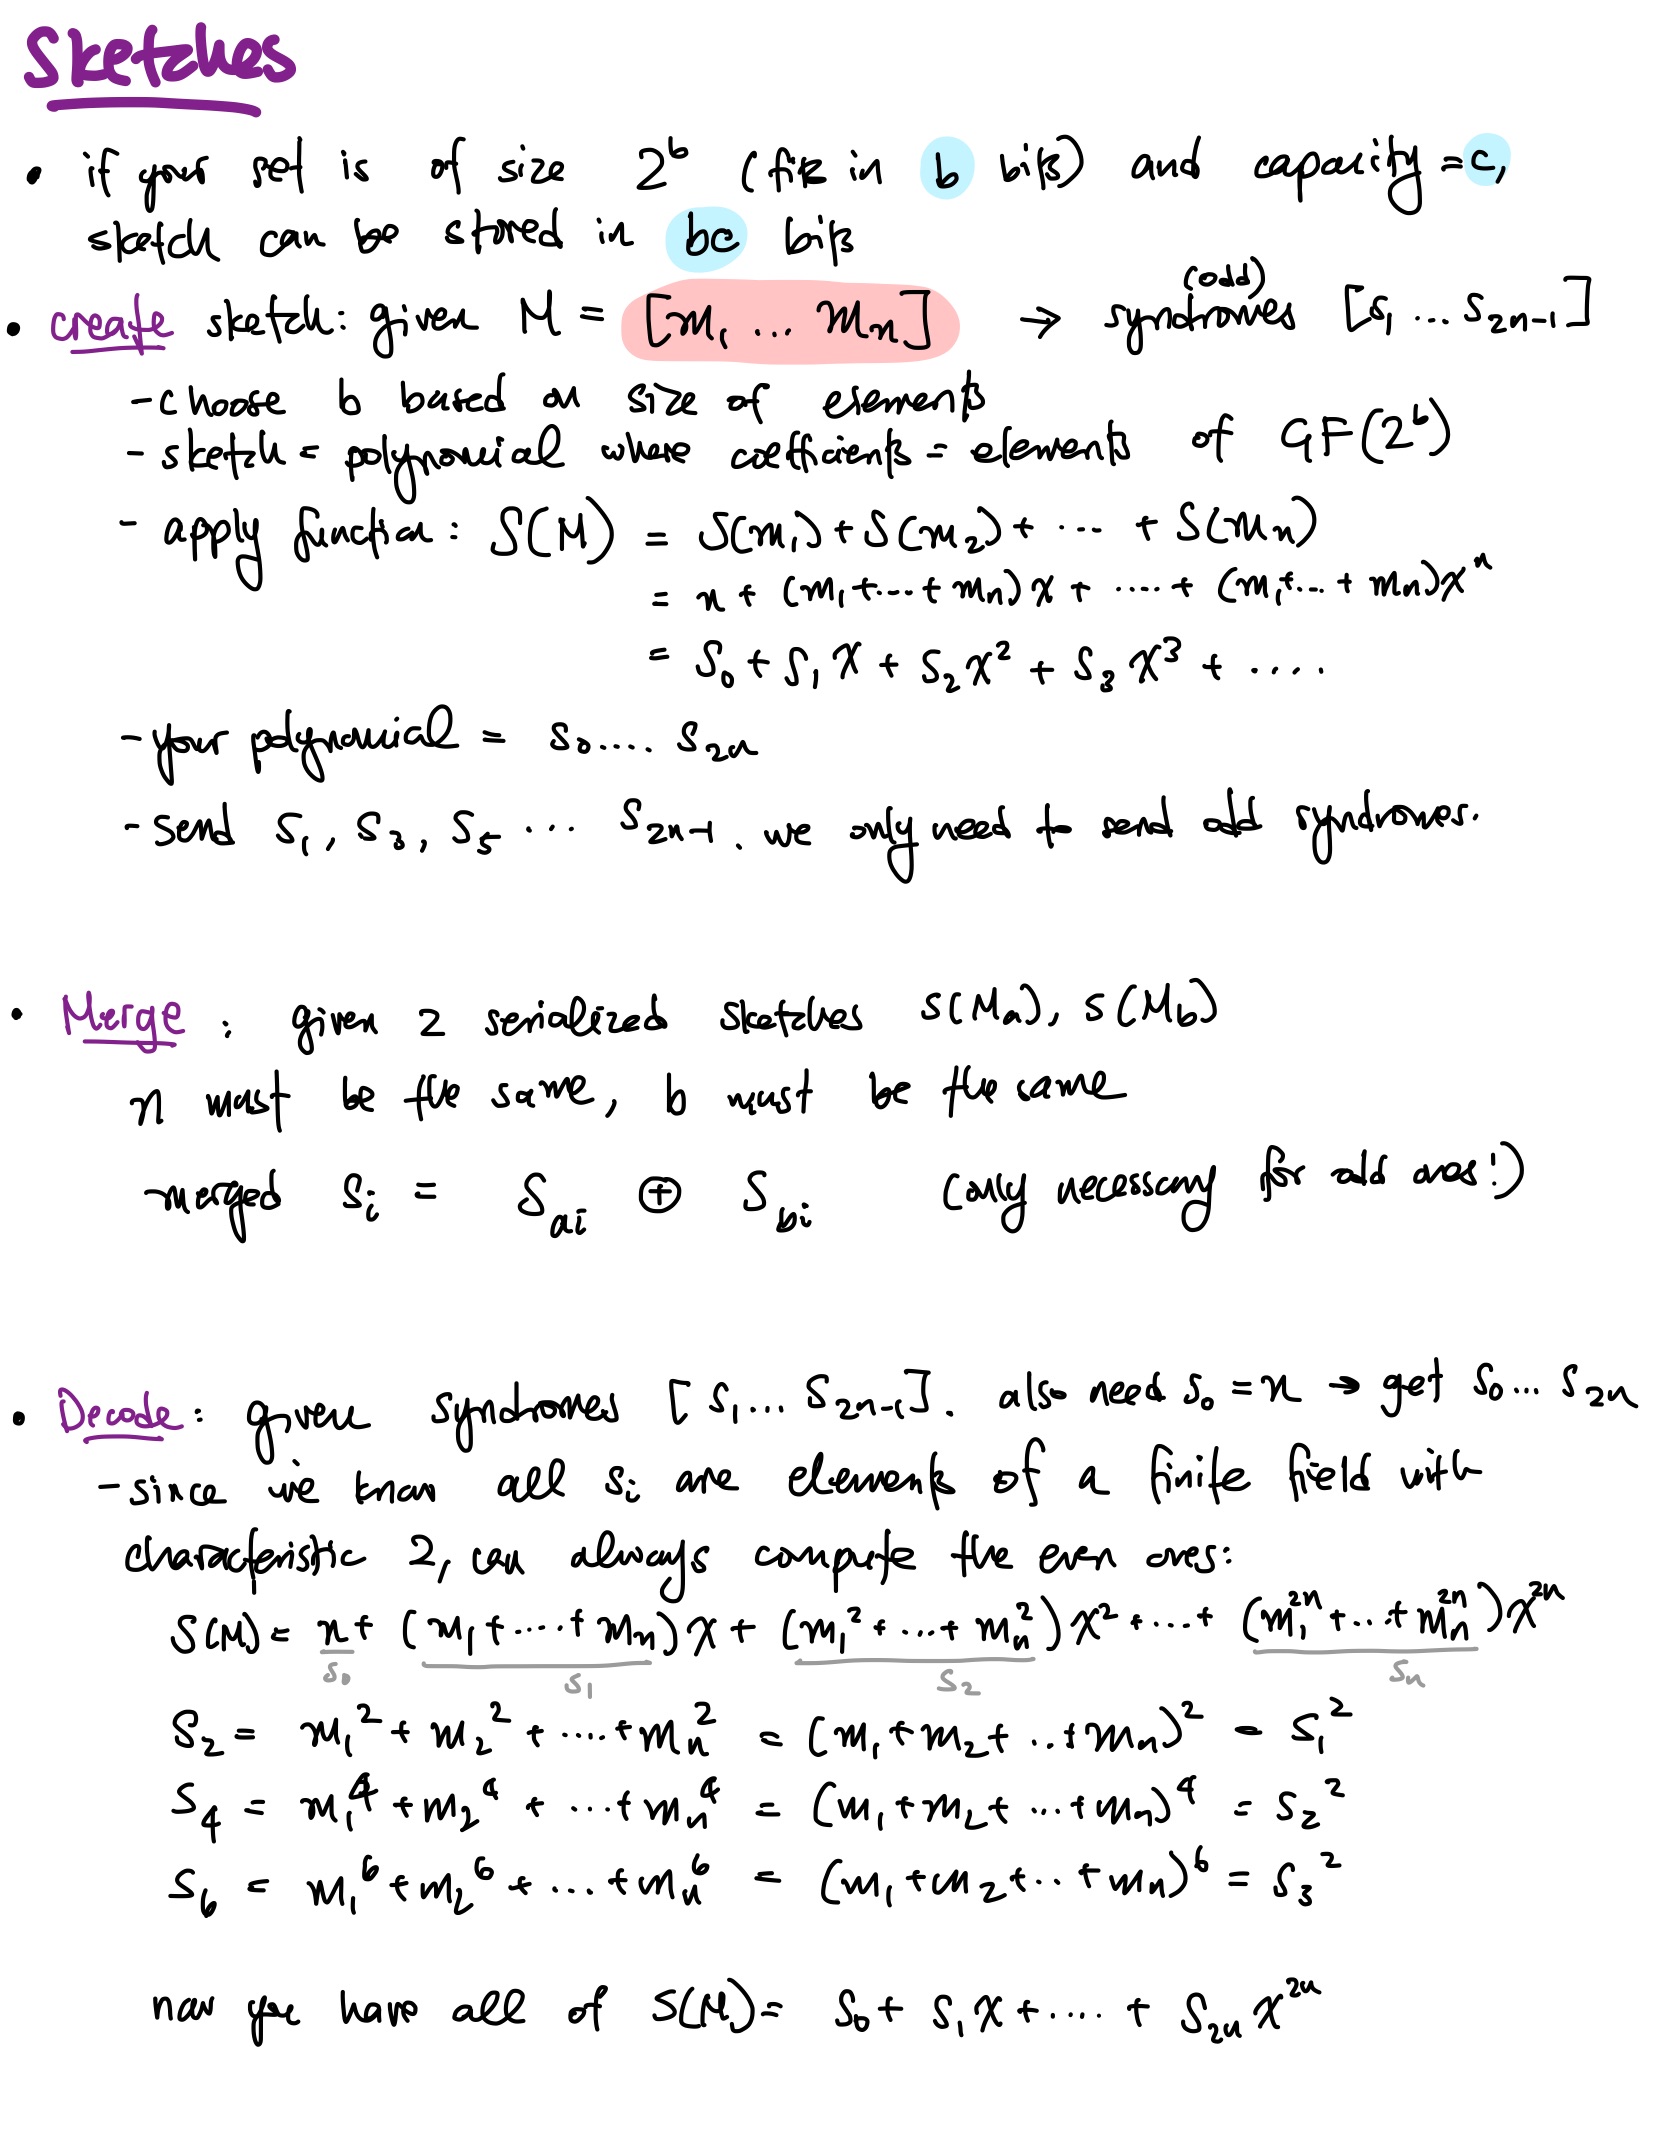 Sketches
• if your set is of size 2^b (fits in b bits) and capacity = c,
sketch can be stored in bc bits
(odd)
• create sketch: given M = [m₁ ... mₙ] → syndromes [s₁ ... s₂ₙ₋₁]
- choose b based on size of elements
- sketch = polynomial where coefficients = elements of GF(2^b)
- apply function: S(M) = S(m₁) + S(m₂) + ... + S(mₙ)
= n + (m₁+...+mₙ)x + .... + (m₁+...+mₙ)xⁿ
= S₀ + S₁x + S₂x² + S₃x³ + ....
- your polynomial = s₀.... s₂ₙ
- send s₁, s₃, s₅ ... s₂ₙ₋₁. we only need to send odd syndromes.
• Merge: given 2 serialized sketches s(Ma), s(Mb)
n must be the same, b must be the same
- merged sᵢ = S_ai ⊕ S_bi (only necessary for odd ones!)
• Decode: given syndromes [s₁... s₂ₙ₋₁]. also need s₀ = n → get s₀... s₂ₙ
- since we know all sᵢ are elements of a finite field with
characteristic 2, can always compute the even ones:
S(M) = n + (m₁+....+mₙ)x + (m₁²+...+mₙ²)x² +...+ (m₁²ⁿ+...+mₙ²ⁿ)x²ⁿ
s₀ s₁ s₂ sₙ
S₂ = m₁² + m₂² + ....+ mₙ² = (m₁+m₂+...+mₙ)² = s₁²
S₄ = m₁⁴ + m₂⁴ + ...+ mₙ⁴ = (m₁+m₂+...+mₙ)⁴ = s₂²
S₆ = m₁⁶ + m₂⁶ + ...+ mₙ⁶ = (m₁+m₂+...+mₙ)⁶ = s₃²
now you have all of S(M) = s₀ + s₁x + .... + s₂ₙx²ⁿ